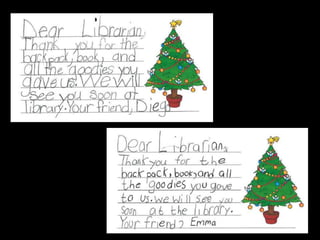 Dear Librarian,
Thank you for the
back pack, book, and
all the goodies you
gave us. We will
see you soon at
library. Your friend, Diego
Dear Librarian,
Thank you for the
back pack, book, and all
the goodies you gave
to us. we will see you
soon at the library.
Your friend, Emma